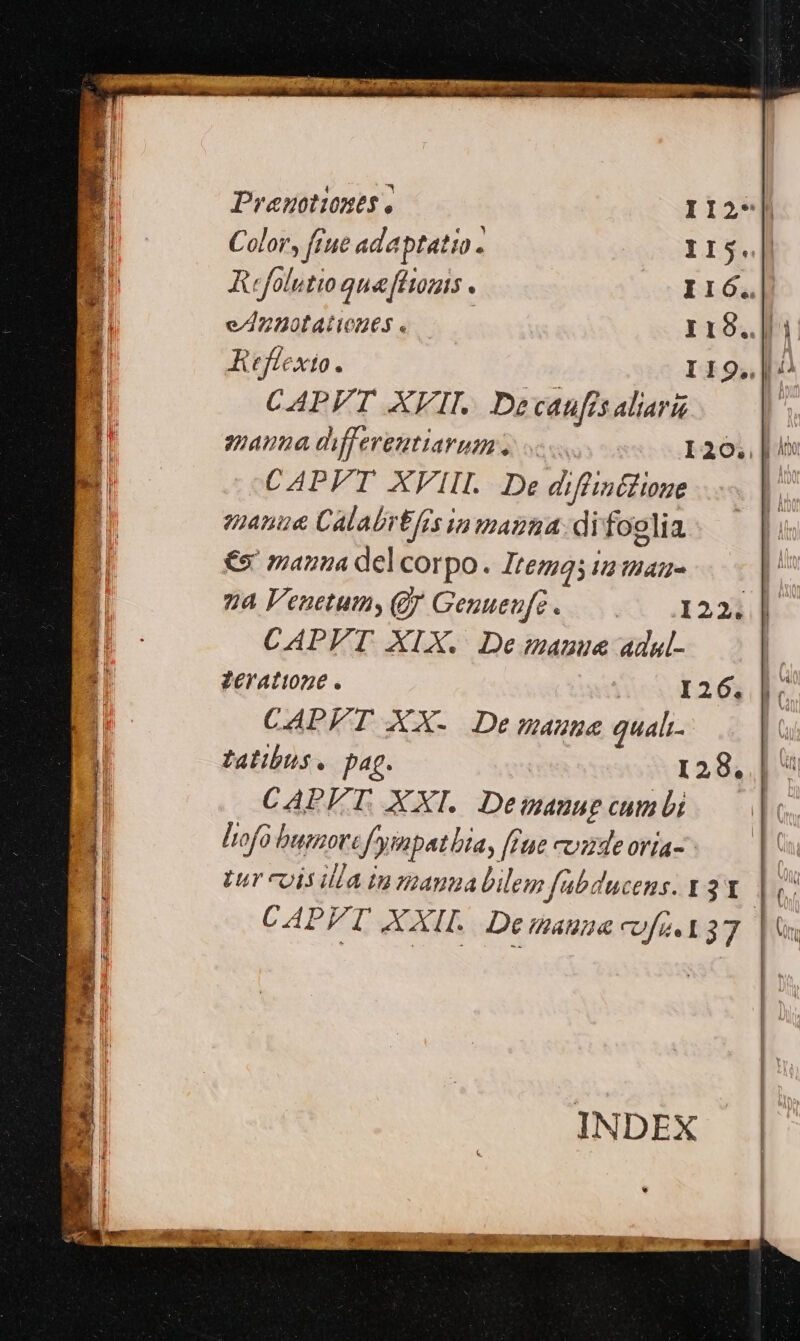 Prænotiones. 112.
Color, siue adaptatio. 115.
Resolutio quæstionis. 116.
Annotationes. 118.
Reflexio. 119.
CAPVT XVII. De causis aliarū
manna differentiarum. 120.
CAPVT XVIII. De distinctione
mannæ Calabrẽsis in manna di foglia
& manna del corpo. Itemq; in man-
na Venetum, & Genuense. 122.
CAPVT XIX. De mannæ adul-
teratione. 126.
CAPVT XX. De mannæ quali-
tatibus. pag. 128.
CAPVT. XXI. De mannę cum bi
lioso humore sympathia, siue vnde oria-
tur vis illa in manna bilem subducens. 131
CAPVT XXII. De mannæ vsu. 137
INDEX